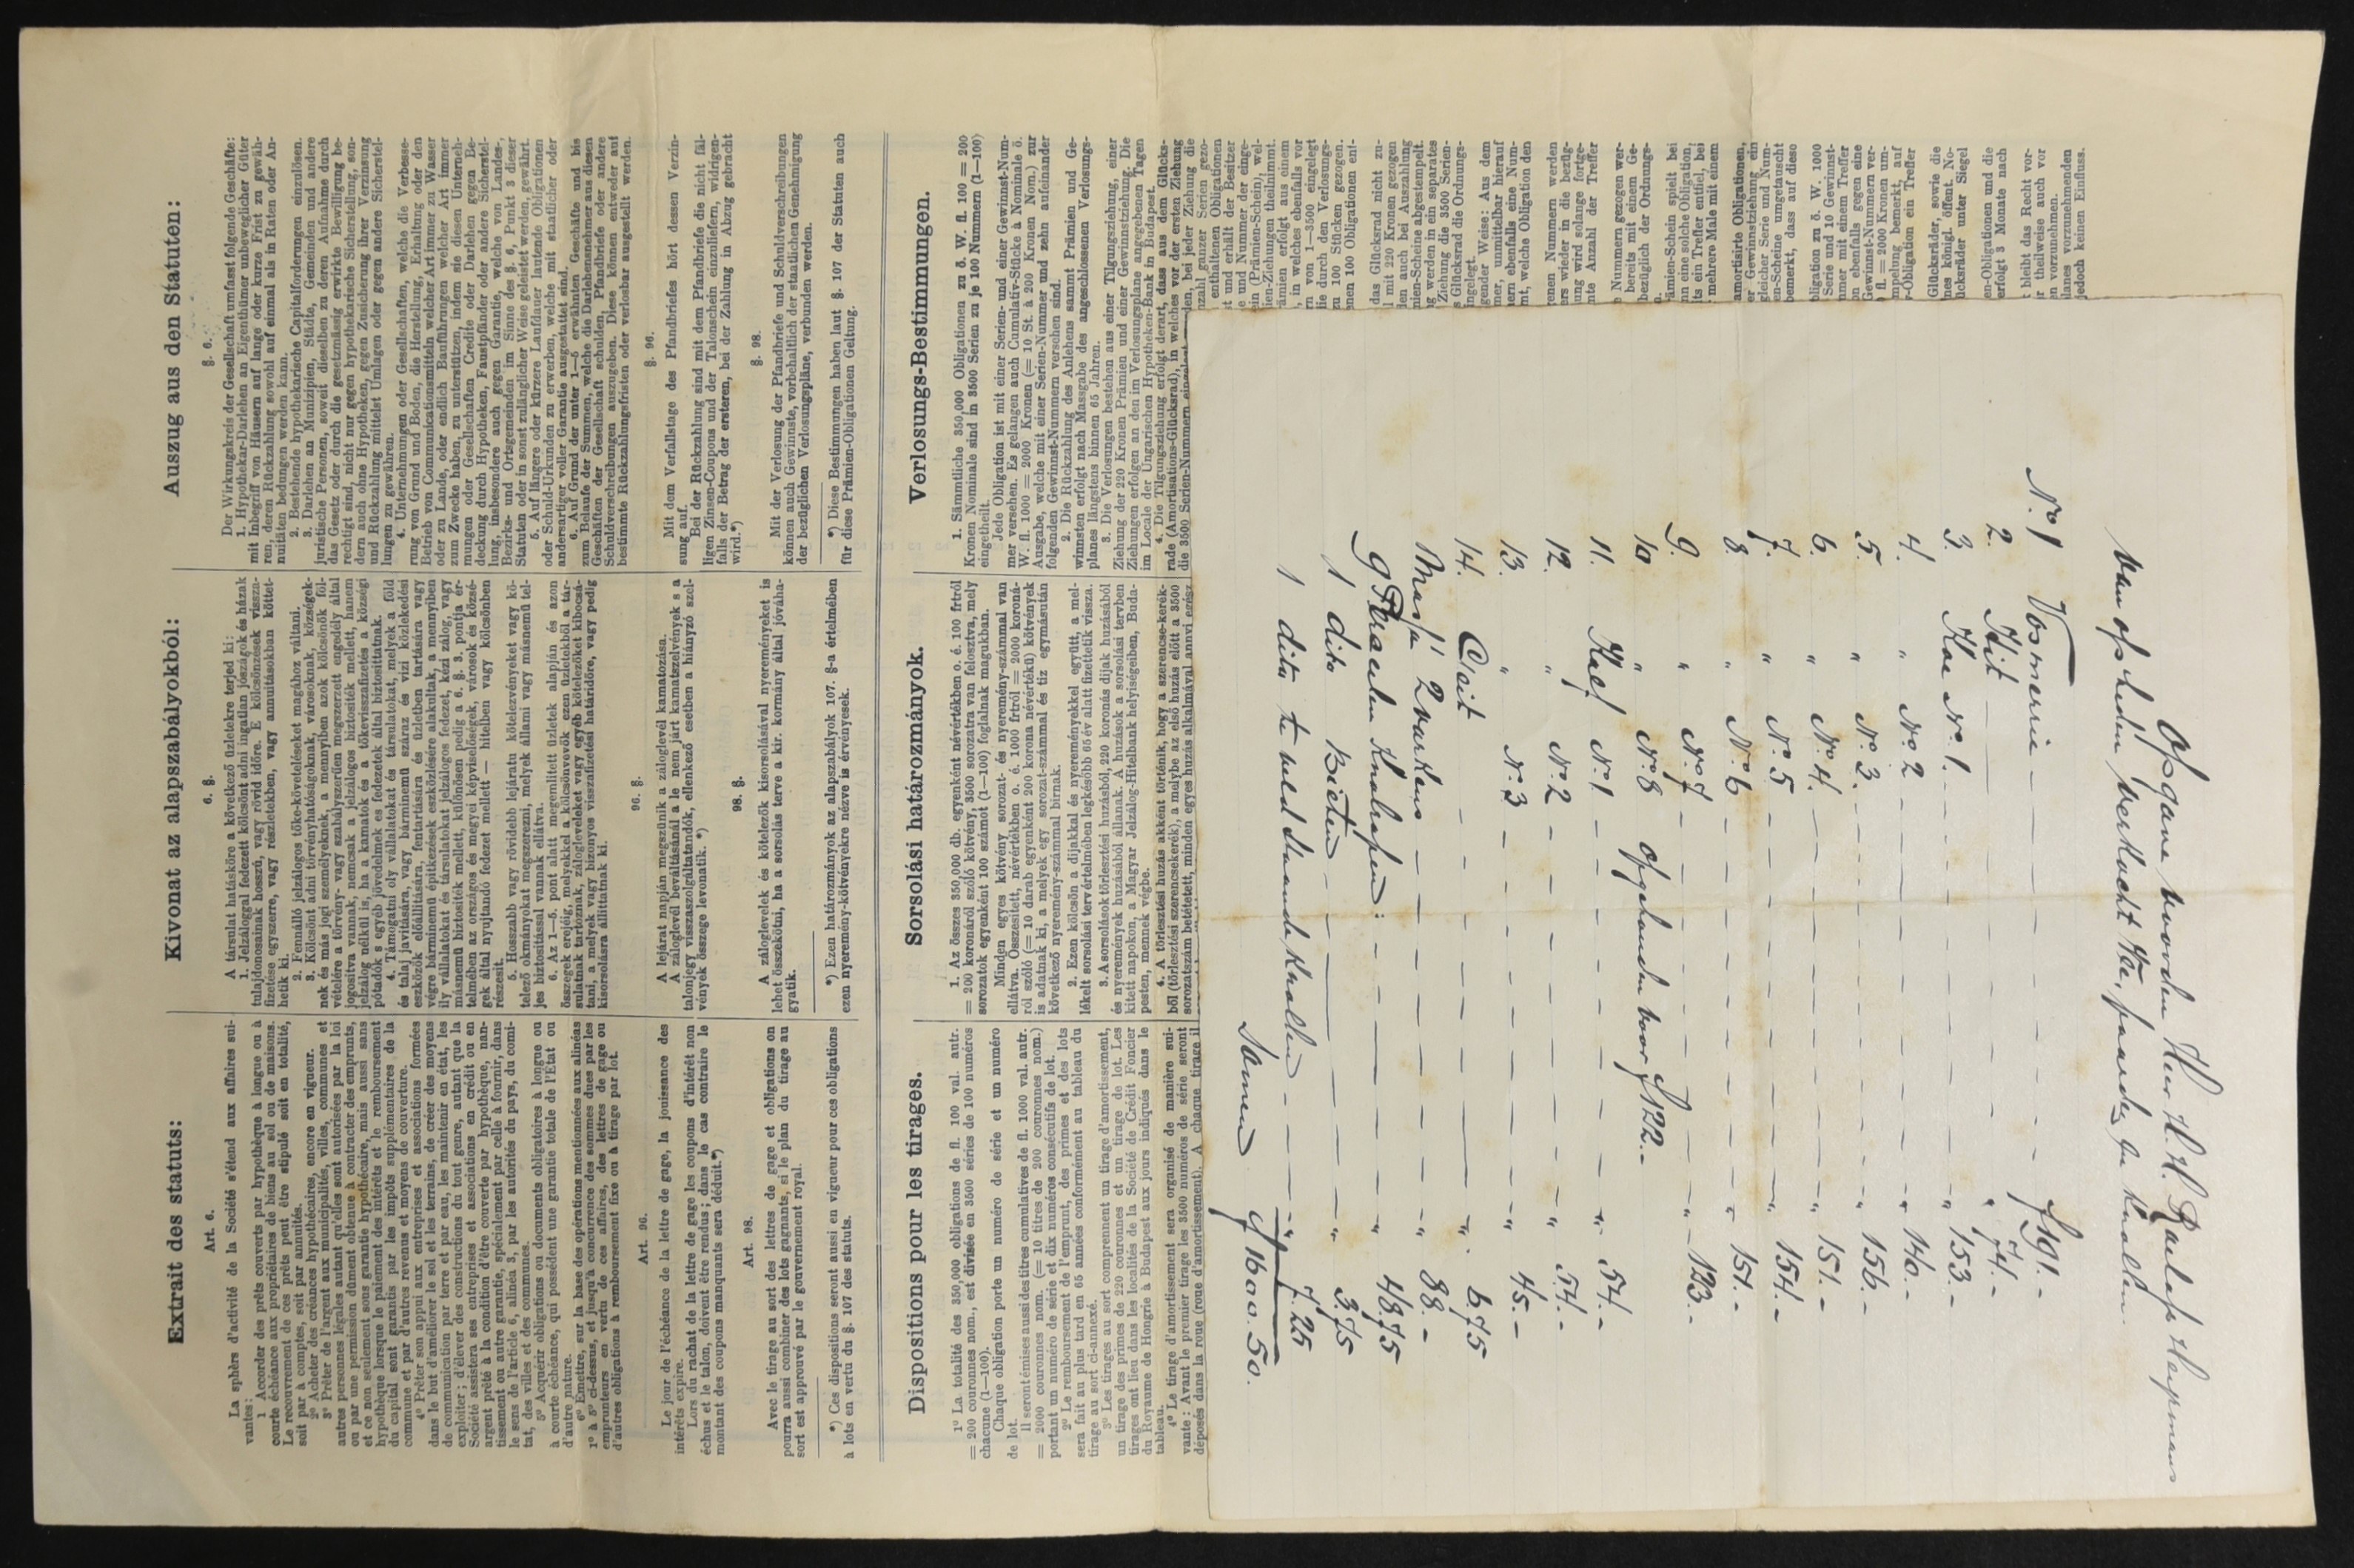 Extrait des statuts:
Art. 6.
La sphèrs d'activité de la Société s'étend aux affaires sui-
vantes:
1 Accorder des prêts couverts par hypothèque à longue ou à
courte échéance aux propriétaires de biens au sol ou de maisons.
Le recouvrement de ces prêts peut être stipulé soit en totalité,
soit par à comptes, soit par annuités.
2º Acheter des créances hypothécaires, encore en vigueur.
3º Prêter de l'argent aux municipalités, villes, communes et
autres personnes légales autant qu'elles sont autorisées par la loi
ou par une permission dûment obtenue à contracter des emprunts,
et ce non seulement sous garantie hypothécaire, mais aussi sans
hypothèque lorsque le paiement des intérêts et le remboursement
du capital sont garantis par les impôts supplémentaires de la
commune et par d'autres revenus et moyens de couverture.
4º Prêter son appui aux entreprises et associations formées
dans le but d'améliorer le sol et les terrains, de créer des moyens
de communication par terre et par eau, les maintenir en état, les
exploiter; d'élever des constructions du tout genre, autant que la
Société assistera ses entreprises et associations en crédit ou en
argent prêté à la condition d'être converte par hypothèque, nan-
tissement ou autre garantie, spécialement par celle à fournir, dans
le sens de l'article 6, alinéa 3, par les autorités du pays, du comi-
tat, des villes et des communes.
5º Acquérir obligations ou documents obligatoires à longue ou
à courte échéance, qui possèdent une garantie totale de l'État ou
d'autre nature.
6º Émettre, sur la base des opérations mentionnées aux alinéas
1º à 5º ci-dessus, et jusqu'à concurrence des sommes dues par les
emprunteurs en vertu de ces affaires, des lettres de gage ou
d'autres obligations à remboursement fixe ou à tirage par lot.
Art. 96.
Le jour de l'échéance de la lettre de gage, la jouissance des
intérêts expire.
Lors du rachat de la lettre de gage les coupons d'intérêt non
échus et le talon, doivent être rendus; dans le cas contraire le
montant des coupons manquants sera déduit.*)
Art. 98.
Avec le tirage au sort des lettres de gage et obligations on
pourra aussi combiner des lots gagnants, si le plan du tirage au
sort est approuvé par le gouvernement royal.
*) Ces dispositions seront aussi en vigueur pour ces obligations
à lots en vertu du §. 107 des statuts.
Kivonat az alapszabályokból:
6. §.
A társulat hatásköre a következő üzletekre terjed ki:
1. Jelzáloggal fedezett kölcsönt adni ingatlan jószágok és házak
tulajdonosainak hosszú, vagy rövid időre. E kölcsönzések vissza-
fizetése egyszerre, vagy részletekben, vagy annuitásokban köttet-
hetik ki.
2. Fennálló jelzálogos tőke-követeléseket magához váltani.
3. Kölcsönt adni törvényhatóságoknak, városoknak, községek-
nek és más jogi személyeknek, a mennyiben azok kölcsönök föl-
vételére a törvény- vagy szabályszerűen megszerzett engedély által
jogositva vannak, nemcsak a jelzálogos biztositék mellett, hanem
jelzálog nélkül is, ha a kamatok és a tőkevisszafizetés a községi
pótadók s egyéb jövedelmek es fedezetek által biztosittatnak.
4. Támogatni oly vállalatokat és társulatokat, melyek a föld
és talaj javitására, vagy bárminemű száraz és vizi közlekedési
eszközök előállitására, fentartására és üzletben tartására vagy
végre bárminemű épitkezések eszközlésére alakultak, a mennyiben
ily vállalatokat és társulatokat jelzálogos fedezet, kézi zálog, vagy
másnemű biztositék mellett, különösen pedig a 6. §. 3. pontja ér-
telmében az országos és megyei képviselőségek, városok és közsé-
gek által nyujtandó fedezet mellett — hitelben vagy kölcsönben
részesit.
5. Hosszabb vagy rövidebb lejáratu kötelezvényeket vagy kö-
telező okmányokat megszerezni, melyek állami vagy másnemű tel-
jes biztositással vannak ellátva.
6. Az 1—5. pont alatt megemlitett üzletek alapján és azon
összegek erejéig, melyekkel a kölcsönvevők ezen üzletekből a tár-
sulatnak tartoznak, zálogleveleket vagy egyéb kötelezőket kibocsá-
tani, a melyek vagy bizonyos visszafizetési határidőre, vagy pedig
kisorsolásra állittatnak ki.
96. §.
A lejárat napján megszünik a záloglevél kamatozása.
A záloglevél beváltásánál a le nem járt kamatszelvények s a
talonjegy visszaszolgáltatandók, ellenkező esetben a hiányzó szel-
vények összege levonatik.*)
98. §.
A záloglevelek és kötelezők kisorsolásával nyereményeket is
lehet összekötni, ha a sorsolás terve a kir. kormány által jóváha-
gyatik.
*) Ezen határozmányok az alapszabályok 107. §-a értelmében
ezen nyeremény-kötvényekre nézve is érvényesek.
Auszug aus den Statuten:
§. 6.
Der Wirkungskreis der Gesellschaft umfasst folgende Geschäfte:
1. Hypothekar-Darlehen an Eigenthümer unbeweglicher Güter
mit Inbegriff von Häusern auf lange oder kurze Frist zu gewäh-
ren, deren Rückzahlung sowohl auf einmal als in Raten oder An-
nuitäten bedungen werden kann.
2. Bestehende hypothekarische Capitalforderungen einzulösen.
3. Darlehen an Munizipien, Städte, Gemeinden und andere
juristische Personen, soweit dieselben zu deren Aufnahme durch
das Gesetz oder durch die gesetzmässig erwirkte Bewilligung be-
rechtigt sind, nicht nur gegen hypothekarische Sicherstellung, son-
dern auch ohne Hypotheken, gegen Zusicherung ihrer Verzinsung
und Rückzahlung mittelst Umlagen oder gegen andere Sicherstel-
lungen zu gewähren.
4. Unternehmungen oder Gesellschaften, welche die Verbesse-
rung von Grund und Boden, die Herstellung, Erhaltung oder den
Betrieb von Communicationsmitteln welcher Art immer zu Wasser
oder zu Lande, oder endlich Bauführungen welcher Art immer
zum Zwecke haben, zu unterstützen, indem sie diesen Unterneh-
mungen oder Gesellschaften Credite oder Darlehen gegen Be-
deckung durch Hypotheken, Faustpfänder oder andere Sicherstel-
lung, insbesondere auch gegen Garantie, welche von Landes-,
Bezirks- und Ortsgemeinden im Sinne des §. 6, Punkt 3 dieser
Statuten oder in sonst zulänglicher Weise geleistet werden, gewährt.
5. Auf längere oder kürzere Laufdauer lautende Obligationen
oder Schuld-Urkunden zu erwerben, welche mit staatlicher oder
andersartiger voller Garantie ausgestattet sind.
6. Auf Grund der unter 1—5 erwähnten Geschäfte und bis
zum Belaufe der Summen, welche die Darlehensnehmer aus diesen
Geschäften der Gesellschaft schulden, Pfandbriefe oder andere
Schuldverschreibungen auszugeben. Diese können entweder auf
bestimmte Rückzahlungsfristen oder verlosbar ausgestellt werden.
§. 96.
Mit dem Verfallstage des Pfandbriefes hört dessen Verzin-
sung auf.
Bei der Rückzahlung sind mit dem Pfandbriefe die nicht fäl-
ligen Zinsen-Coupons und der Talonschein einzuliefern, widrigen-
falls der Betrag der ersteren, bei der Zahlung in Abzug gebracht
wird.*)
§. 98.
Mit der Verlosung der Pfandbriefe und Schuldverschreibungen
können auch Gewinnste, vorbehaltlich der staatlichen Genehmigung
der bezüglichen Verlosungspläne, verbunden werden.
*) Diese Bestimmungen haben laut §. 107 der Statuten auch
für diese Prämien-Obligationen Geltung.
Dispositions pour les tirages.
1º La totalité des 350,000 obligations de fl. 100 val. autr.
= 200 couronnes nom., est divisée en 3500 séries de 100 numéros
chacune (1—100).
Chaque obligation porte un numéro de série et un numéro
de lot.
Il seront émises aussi des titres cumulatives de fl. 1000 val. autr.
= 2000 couronnes nom. (= 10 titres de 200 couronnes nom.)
portant un numéro de série et dix numéros consécutifs de lot.
2º Le remboursement de l'emprunt, des primes et des lots
sera fait au plus tard en 65 années conformément au tableau du
tirage au sort ci-annexé.
3º Les tirages au sort comprennent un tirage d'amortissement,
un tirage des primes de 220 couronnes et un tirage de lot. Les
tirages ont lieu dans les localités de la Société de Crédit Foncier
du Royaume de Hongrie à Budapest aux jours indiqués dans le
tableau.
4º Le tirage d'amortissement sera organisé de manière sui-
vante: Avant le premier tirage les 3500 numéros de série seront
déposés dans la roue (roue d'amortissement). A chaque tirage il
Sorsolási határozmányok.
1. Az összes 350,000 db. egyenként névértékben o. é. 100 frtról
= 200 koronáról szóló kötvény, 3500 sorozatra van felosztva, mely
sorozatok egyenként 100 számot (1—100) foglalnak magukban.
Minden egyes kötvény sorozat- és nyeremény-számmal van
ellátva. Összesitett, névértékben o. é. 1000 frtról = 2000 koroná-
ról szóló (= 10 darab egyenként 200 korona névértékű) kötvények
is adatnak ki, a melyek egy sorozat-számmal és tiz egymásután
következő nyeremény-számmal birnak.
2. Ezen kölcsön a dijakkal és nyereményekkel együtt, a mel-
lékelt sorsolási terv értelmében legkésőbb 65 év alatt fizettetik vissza.
3. A sorsolások törlesztési huzásból, 220 koronás dijak huzásából
és nyeremények huzásából állanak. A huzások a sorsolási tervben
kitett napokon, a Magyar Jelzálog-Hitelbank helyiségeiben, Buda-
pesten, mennek végbe.
4. A törlesztési huzás akként történik, hogy a szerencse-kerék-
ből (törlesztési szerencsekerék), a melybe az első huzás előtt a 3500
sorozatszám betétetett, minden egyes huzás alkalmával annyi egész
Verlosungs-Bestimmungen.
1. Sämmtliche 350,000 Obligationen zu ö. W. fl. 100 = 200
Kronen Nominale sind in 3500 Serien zu je 100 Nummern (1—100)
eingetheilt.
Jede Obligation ist mit einer Serien- und einer Gewinnst-Num-
mer versehen. Es gelangen auch Cumulativ-Stücke à Nominale ö.
W. fl. 1000 = 2000 Kronen (= 10 St. à 200 Kronen Nom.) zur
Ausgabe, welche mit einer Serien-Nummer und zehn aufeinander
folgenden Gewinnst-Nummern versehen sind.
2. Die Rückzahlung des Anlehens sammt Prämien und Ge-
winnsten erfolgt nach Massgabe des angeschlossenen Verlosungs-
planes längstens binnen 65 Jahren.
3. Die Verlosungen bestehen aus einer Tilgungsziehung, einer
Ziehung der 220 Kronen Prämien und einer Gewinnstziehung. Die
Ziehungen erfolgen an den im Verlosungsplane angegebenen Tagen
im Locale der Ungarischen Hypotheken-Bank in Budapest.
4. Die Tilgungsziehung erfolgt derart, dass aus dem Glücks-
rade (Amortisations-Glücksrad), in welches vor der ersten Ziehung
die 3500 Serien-Nummern eingelegt
den, bei jeder Ziehung die
nzahl ganzer Serien gezo-
enthaltenen Obligationen
t und erhält der Besitzer
e und Nummer der einge-
ein (Prämien-Schein), wel-
ien-Ziehungen theilnimmt.
ämien erfolgt aus einem
, in welches ebenfalls vor
rn von 1—3500 eingelegt
lie durch den Verlosungs-
zu 100 Stücken gezogen.
enen 100 Obligationen ent-
das Glücksrad nicht zu-
l mit 220 Kronen gezogen
den auch bei Auszahlung
mien-Scheine abgestempelt.
g werden in ein separates
Ziehung die 3500 Serien-
s Glücksrad die Ordnungs-
ngelegt.
gender Weise: Aus dem
er, unmittelbar hierauf
ern ebenfalls eine Num-
mt, welche Obligation den
enen Nummern werden
rs wieder in die bezüg-
ung wird solange fortge-
mte Anzahl der Treffer
e Nummern gezogen wer-
bereits mit einem Ge-
bezüglich der Ordnungs-
ämien-Schein spielt bei
n eine solche Obligation,
ts ein Treffer entfiel, bei
mehrere Male mit einem
amortisirte Obligationen,
er Gewinnstziehung ein
gleicher Serie und Num-
en-Scheine umgetauscht
bemerkt, dass auf diese
bligation zu ö. W. 1000
Serie und 10 Gewinnst-
mmer mit einem Treffer
n ebenfalls gegen eine
Gewinnst-Nummern ver-
fl. = 2000 Kronen um-
mpelung bemerkt, auf
r-Obligation ein Treffer
Glücksräder, sowie die
nes königl. öffentl. No-
ücksräder unter Siegel
en-Obligationen und die
erfolgt 3 Monate nach
t bleibt das Recht vor-
r theilweise auch vor
n vorzunehmen.
lanes vorzunehmenden
jedoch keinen Einfluss.
Opgave Heer H. H.
van op heden verkocht paarden en
Nº 1 Vosmerrie — f 191.-
2. Hit — " 74.-
3. Koe Nº 1. — " 153.-
4. " Nº 2 — " 140.-
5. " Nº 3. — " 156.-
6. " Nº 4. — " 151.-
7. " Nº 5 — " 154.-
8. " Nº 6 — " 151.-
9. " Nº 7 — " 123.-
10 " Nº 8 opgehouden voor f 122.-
11. Kalf Nº 1 — " 54.-
12. " Nº 2 — " 54.-
13. " Nº 3 — " 45.-
14. — " 6.75
2 varkens — " 88.-
9 — " 48.75
1 dito Bieten — " 3.75
1 dito — " 7.25
Samen f 1600.50.